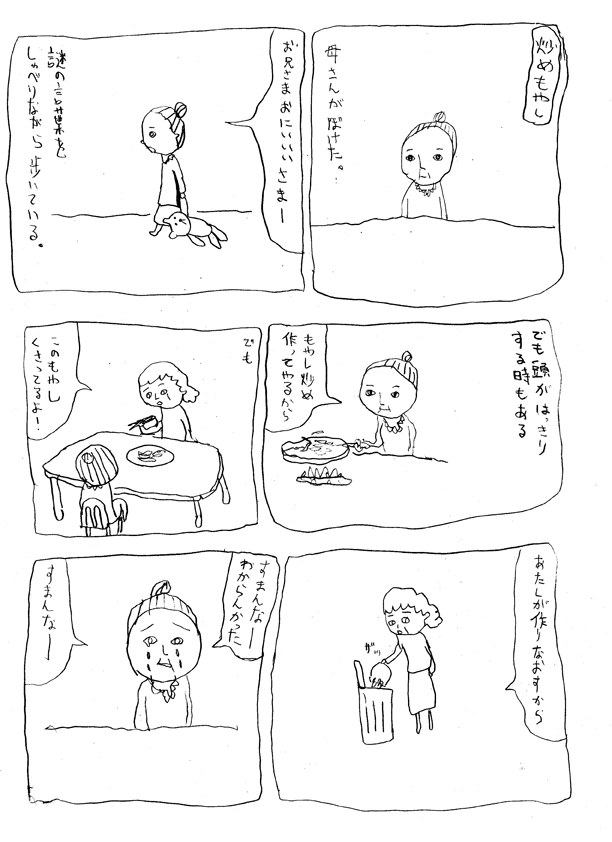 炒めもやし
母さんがぼけた。
お兄さまおにいいいさまー
謎の言葉を
しゃべりながら歩いている。
でも頭がはっきり
する時もある
もやし炒め
作ってやるから
でも
このもやし
くさってるよー!
あたしが作りなおすから
ザッ
すまんなー
わからんかった
すまんなー